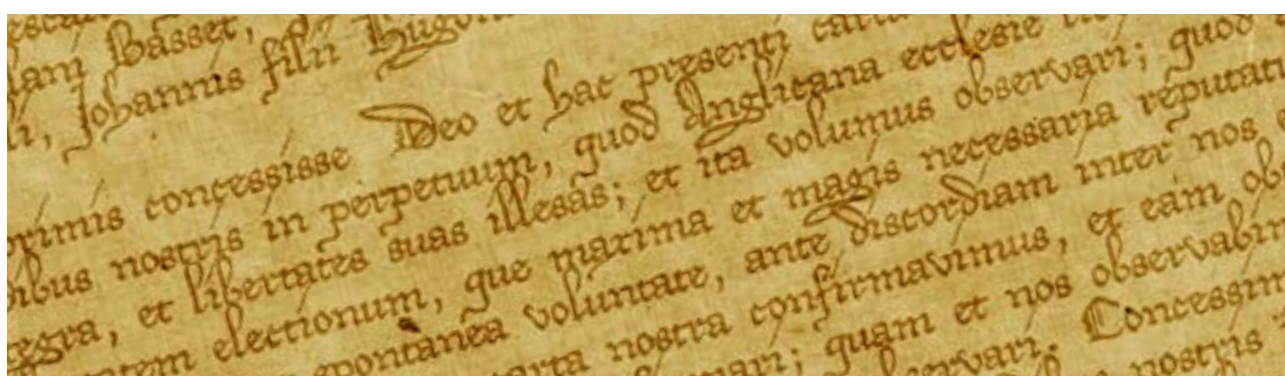 lani Basset,
li, Johannis filii Hugon
primis concessisse Deo et hac presenti cart
ibus nostris in perpetuum, quod Anglicana ecclesie
egra, et libertates suas illesas; et ita volumus observari; quod
tatem electionum, que maxima et magis necessaria reputat
spontanea voluntate, ante discordiam inter nos
arta nostra confirmavimus, et eam ob
ari; quam et nos observabi
servari. Concessim
nostris